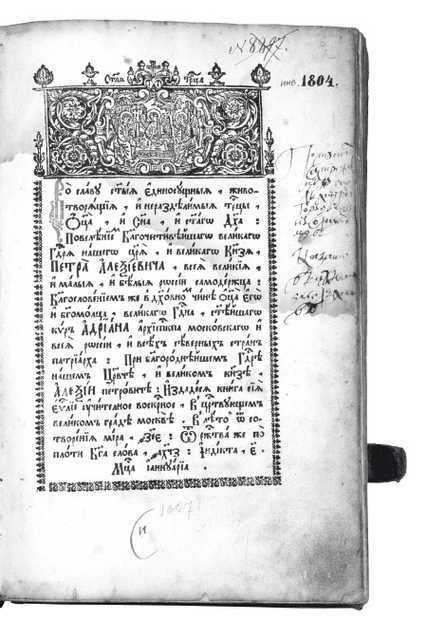 № 8897.
инв. 1804.
Ст҃аѧ Трⷪ҇ца
Во славу ст҃ыѧ единосущныѧ, живо-
творѧщіѧ, и нераздѣлимыѧ трⷪ҇цы,
Ѻц҃а, и Сн҃а, и ст҃агѡ Дх҃а :
Повелѣнїемъ Бл҃гочестивѣйшагѡ великагѡ
Гдⷭ҇рѧ нашегѡ цр҃ѧ, и великагѡ Кн҃зѧ,
ПЕТРА АЛЕѮІЕВИЧА, всеѧ великїѧ,
и малыѧ, и бѣлыѧ рѡссїи самодержца :
Бл҃гословенїемъ же в дх҃овнѡ чинѣ Ѻц҃а Егѡ
и бг҃омолца, великагѡ Гдⷭ҇на, ст҃ѣйшагѡ
кѵръ АДРІАНА архїепⷭ҇кпа московскагѡ и
всеѧ рѡссїи, и всѣхъ сѣверныхъ странъ
патрїарха : При благороднѣйшемъ Гдⷭ҇рѣ
нашемъ Цр҃втѣ, и великомъ кн҃зѣ,
АЛЕѮІИ петровичѣ : Издадесѧ книга сїѧ
Еѵⷢ҇лїе учителное воскрⷭ҇ное, в црⷭ҇твующемъ
великомъ градѣ москвѣ. В лѣто ѿ со-
творенїѧ мїра, ҂зсе҃ : Ѿ ржⷭ҇тва же по
плоти Бг҃а слова, ҂ахч҃з : Їндікта, е҃.
Мцⷭ҇а їаннуарїа .
1697